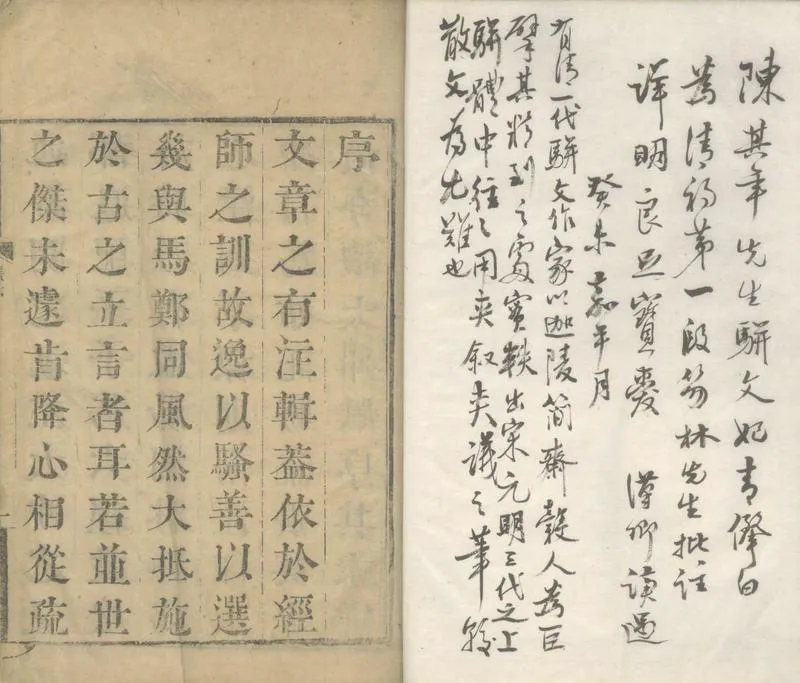 陳其年先生駢文妃青儷白
為清初第一段芴林先生批註
詳明良足寶愛 漢卿讀過
癸未嘉平月
有清一代駢文作家以迦陵簡齋穀人為巨
擘其精到之處實軼出宋元明三代之上
駢體中往々用夾叙夾議之筆較
散文為尤難也
序
文章之有注輯蓋依於經
師之訓故逸以騷善以選
幾與馬鄭同風然大抵施
於古之立言者耳若並世
之傑未遽肯降心相從疏